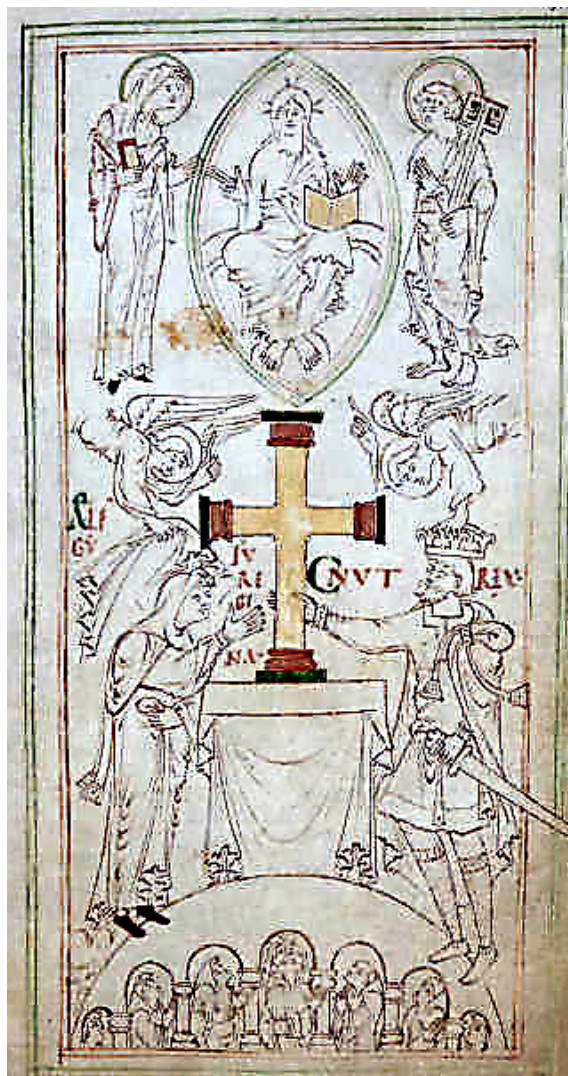 ÆLF
GY
FV
RE
GI
NA·
CNVT REX